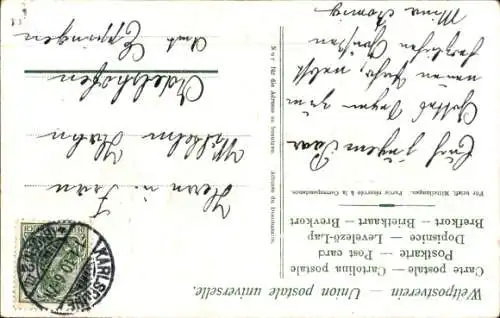 Weltpostverein — Union postale universelle.
Carte postale — Cartolina postale
Postkarte — Post card
Dopisnice — Levelező-Lap
Brefkort — Briefkaart — Brevkort
Für briefl. Mitteilungen. Partie réservée à la Correspondance.
Euch jungem Paar
Gottes Segen zum
neuen Jahr, nebst
herzlichen Grüßen
Mina König
Nur für die Adresse zu benutzen. Adresse du Destinataire.
Herrn u. Frau
Wilhelm Hahn
Adelshofen
Amt Eppingen
KARLSRUHE